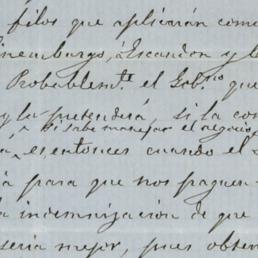 filos que aplicarán com
inemburgo, á Escandon y l
Probablemte. el Gob.no que
y la pretenderá, si la con
si sabe manejar el negocio
es, entonces cuando el
á para que nos paguen
a indemnizacion de que
seria mejor, pues obten